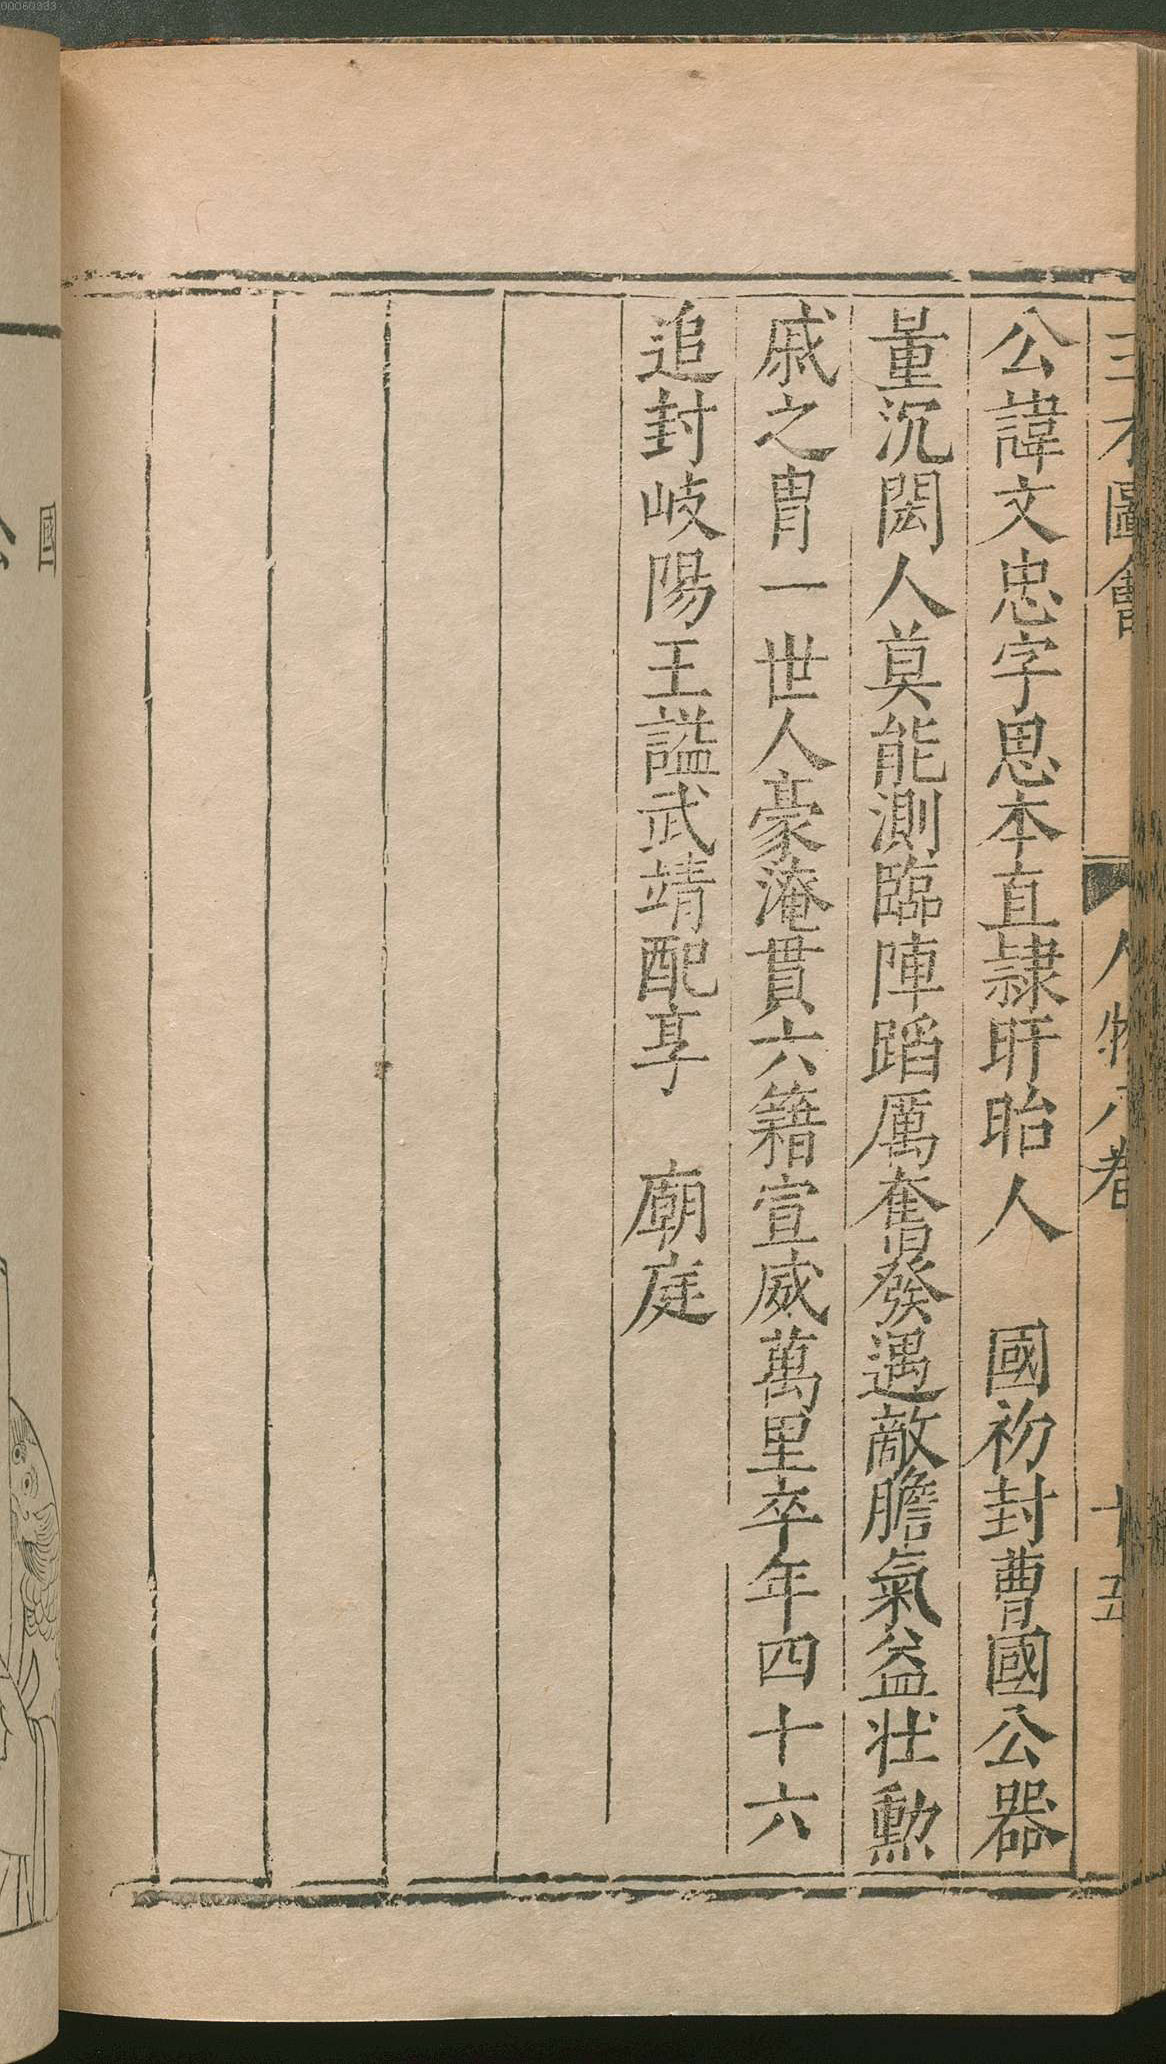 三才圖會 人物六卷 十五
公諱文忠字思本直隷盱眙人 國初封曹國公器
量沉閎人莫能測臨陣蹈厲奮發遇敵膽氣益壯勲
戚之冑一世人豪淹貫六籍宣威萬里卒年四十六
追封岐陽王謚武靖配享 廟庭
國
公
00060333